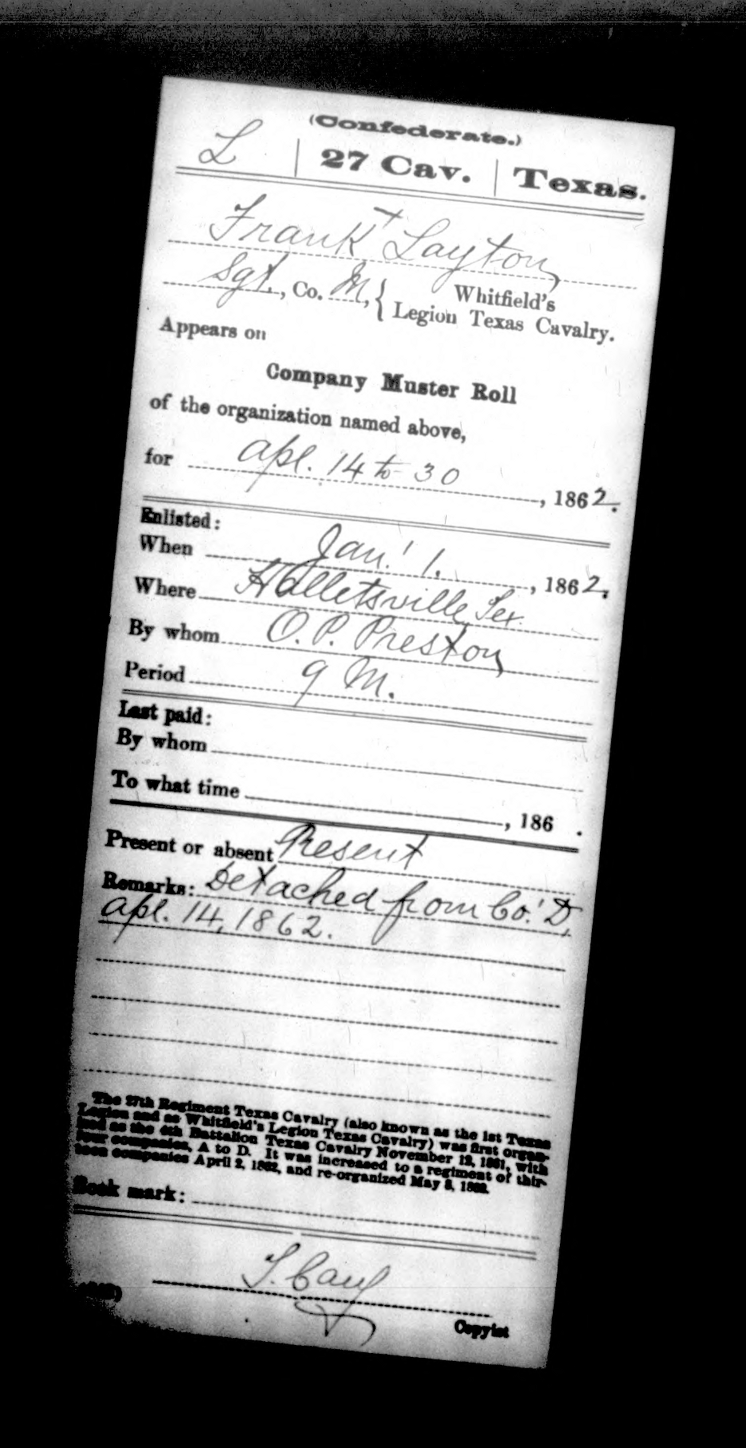 (Confederate.)
L | 27 Cav. | Texas.
Frank Layton
Sgt., Co. M, { Whitfield's
Legion Texas Cavalry.
Appears on
Company Muster Roll
of the organization named above,
for Apl. 14 to 30, 1862.
Enlisted:
When Jan. 1., 1862.
Where Halletsville Tex.
By whom O. P. Preston
Period 9 M.
Last paid:
By whom
To what time , 186 .
Present or absent Present
Remarks: Detached from Co. D,
Apl. 14, 1862.
The 27th Regiment Texas Cavalry (also known as the 1st Texas
Legion and as Whitfield's Legion Texas Cavalry) was first organ-
ized as the 4th Battalion Texas Cavalry November 12, 1861, with
four companies, A to D. It was increased to a regiment of thir-
teen companies April 2, 1862, and re-organized May 8, 1862.
Book mark:
Copyist